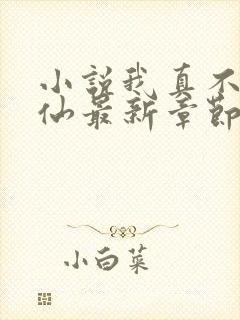 小说我真不
仙最新章节
小白菜